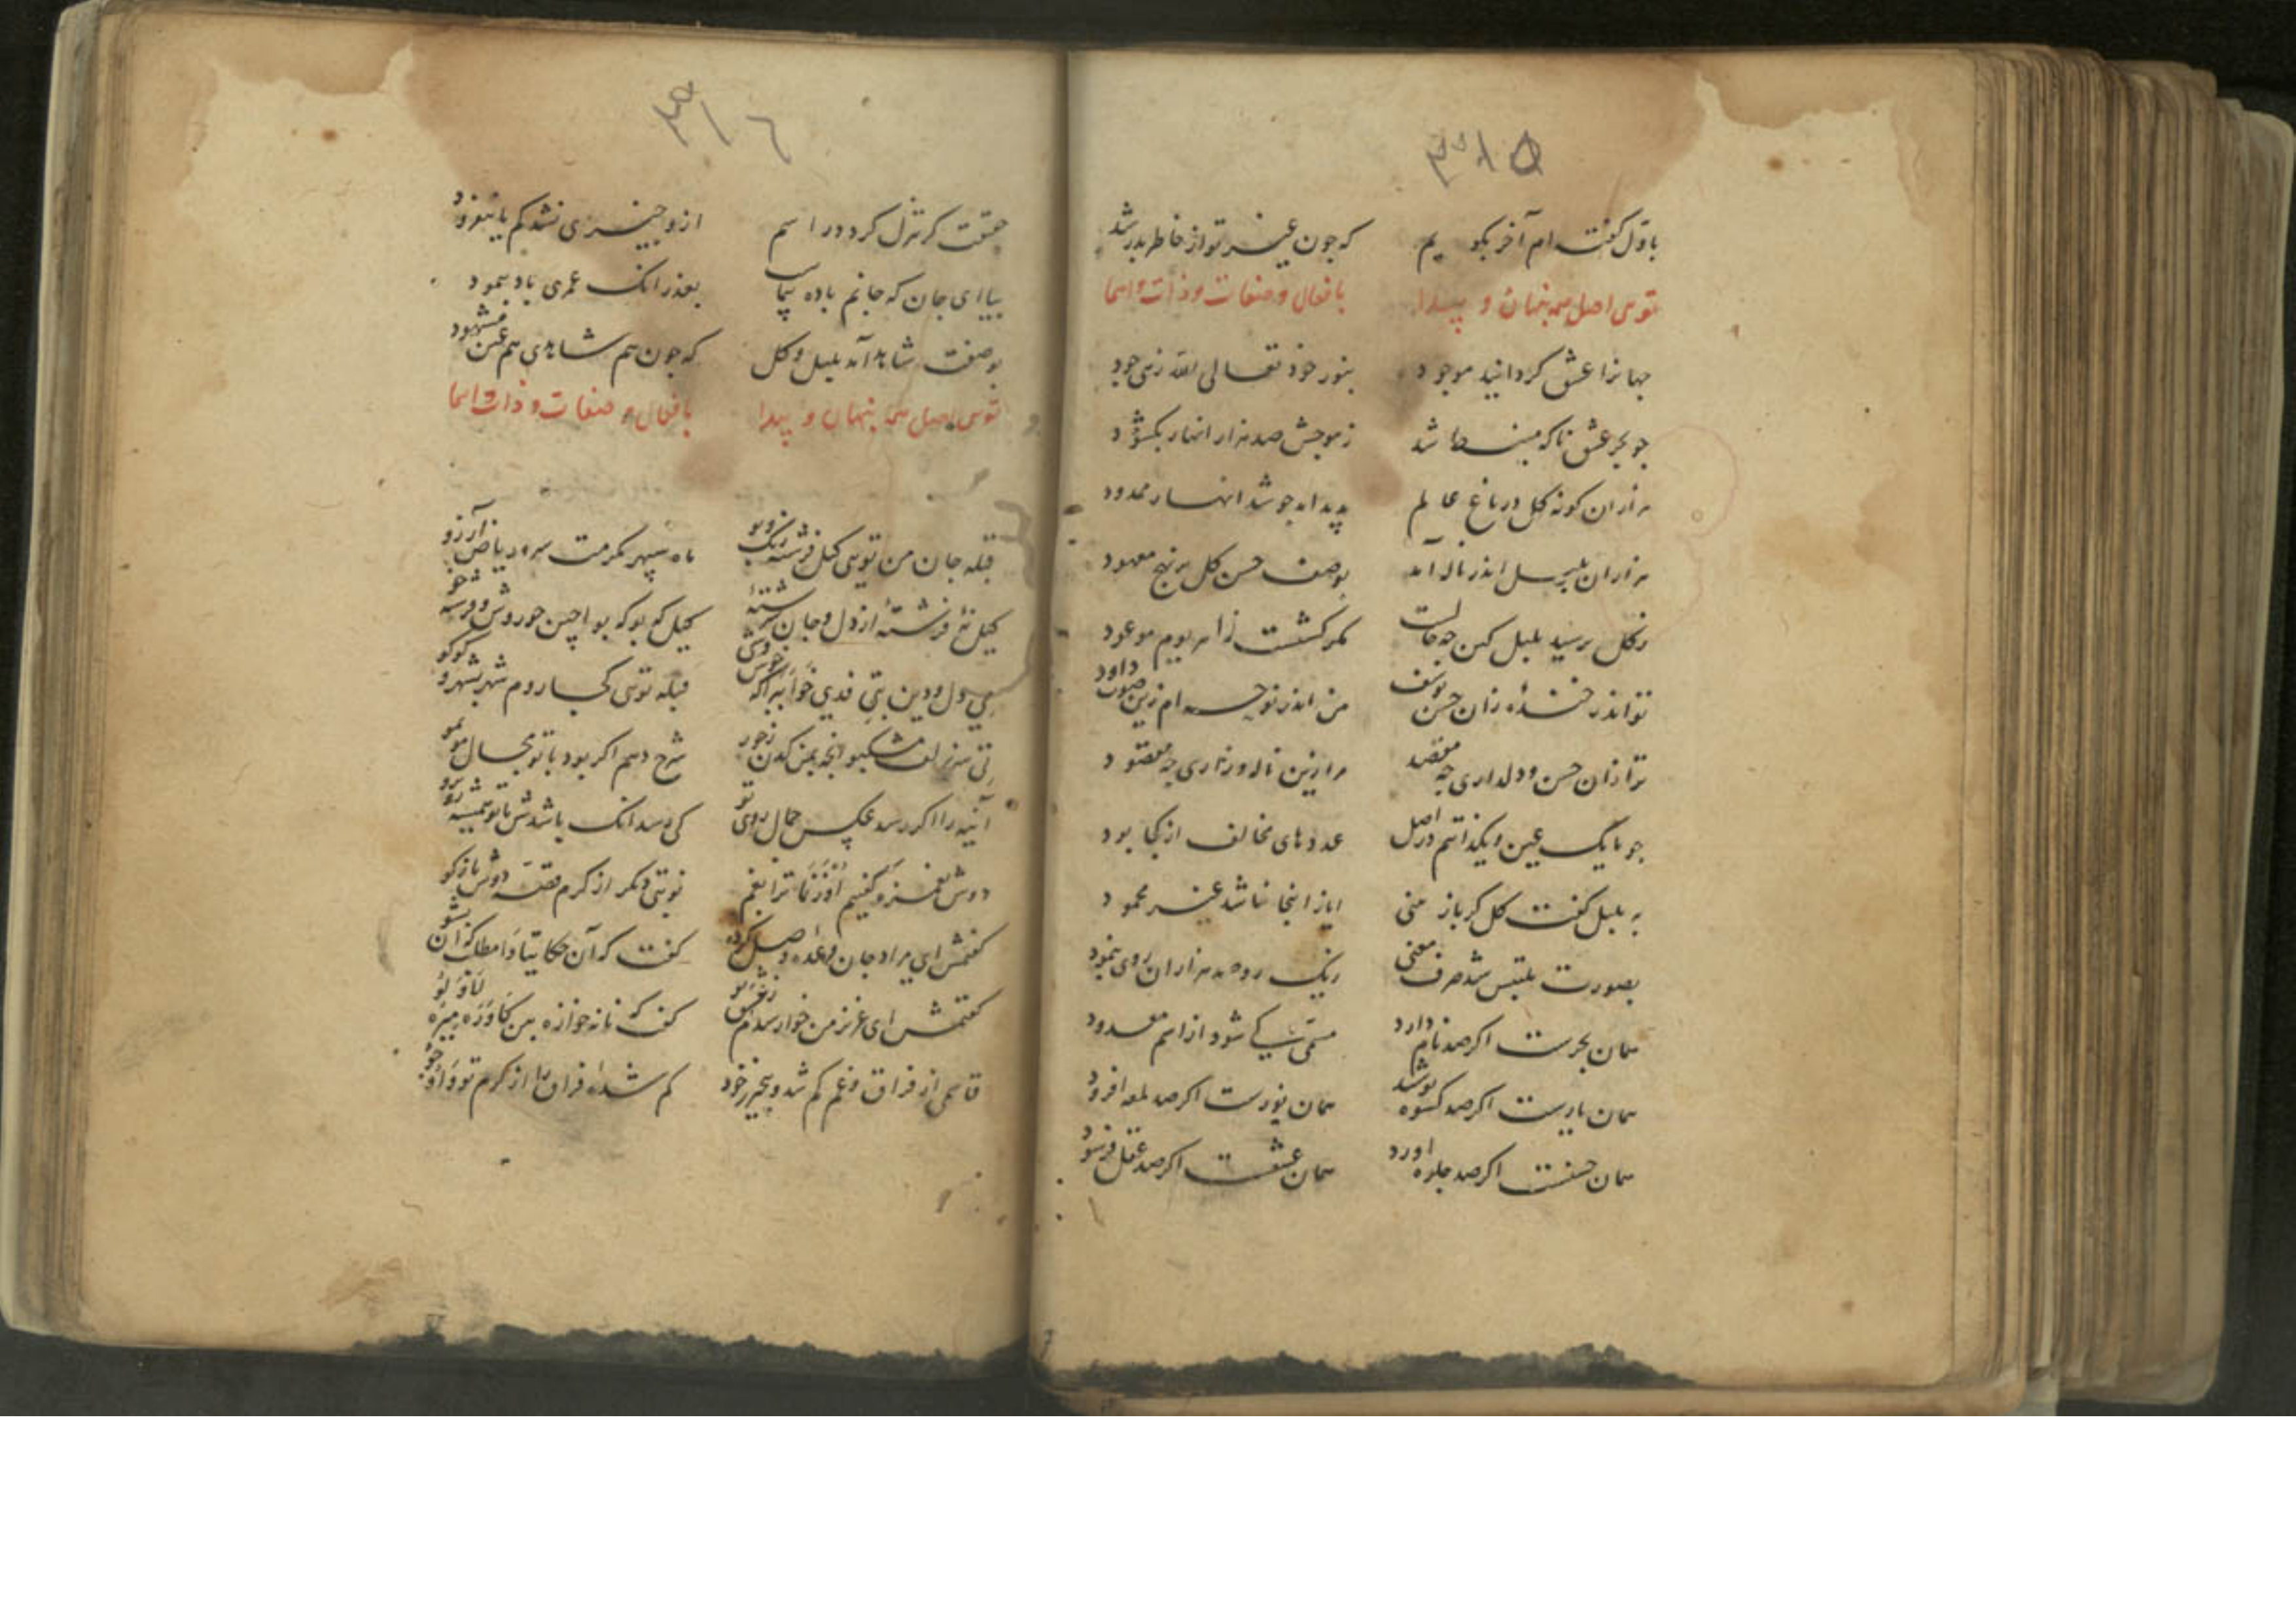 ٣١٥
باول گفته ام آخر بگویم که چون غیر تو از خاطر بدر شد
توی اصل همه پنهان و پیدا بافعال و صفات و ذات و اسما
جهانرا عشق گردانید موجود بنور خود تعالی الله زهی جود
چو بحر عشق ناگه منبسط شد ز موجش صد هزار انهار بگشود
هزاران گونه گل در باغ عالم پدید امد چو شد انهار ممدود
هزاران بلبل اندر ناله آمد بوصف حسن گل بر نهج معهود
ز گل پرسید بلبل کین چه حالست مگر گشتست زاهر یوم موعود
تو اندر خنده زان حسن یوسف من اندر نوحه ام زین صوت داود
ترا زان حسن و دلداری چه مقصد مرا زین ناله و زاری چه مقصود
چو ما یک عین و یکذاتیم در اصل عددهای مخالف از کجا بود
به بلبل گفت گل کرباز منی ایاز اینجا نباشد غیر محمود
بصورت ملتبس شد حرف معنی زیک رو صد هزاران روی بنمود
همان بحرست اگر صد نام دارد مسمی کی شود از اسم معدود
همان یارست اگر صد کسوه پوشد همان نورست اگر صد لمعه افزود
همان حسنست اگر صد جلوه اورد همان عشقست اگر صد عقل فرسود
٣١٦
حقیقت گر تنزل کرد در اسم ازو چیزی نشد کم یا نیفزود
بیا ای جان که جانم باده پیماست بعد زانک عمری باد پیمود
بوصفت شاهد آمد بلبل و گل که چون هم شاهدی هم عین مشهود
توی اصل همه پنهان و پیدا بافعال و صفات و ذات و اسما
قبله جان من تویی گیل فرشته رنگ و بو ماه سپهر مکرمت سرو ریاض آرزو
گیل نه فرشته از دل و جان سرشته گیل که بو که بو اچین حوروش و فرشته خو
می دل و دین بتی فدی خوابه اگه خوش دی قبله توی کجا روم شهر بشهر و کو بکو
تی سر زلف مشکبو انچه بمن کدن زجور شرح دهم اگر بود با تو مجال مو بمو
آینه را اگر رسد عکس جمال روی تو کی رسد انک باشدش با تو همیشه رو برو
دوش بغمزه گفتیم اوزنما ترا بغم نوبتی دگر از کرم قصه دوش بازگو
گفتمش ای مراد جان وعده وصل کرده گفت که آن حکایتا وامطلب که ان بشو
گفتمش ای عزیز من خوار بدام ز عشق تو گفت که نانه خوازه بین کاوره میره لاولو
قاسمی از فراق و غم گم شد و بیخبر ز خود گم شده فراق را از کرم تو واوجو